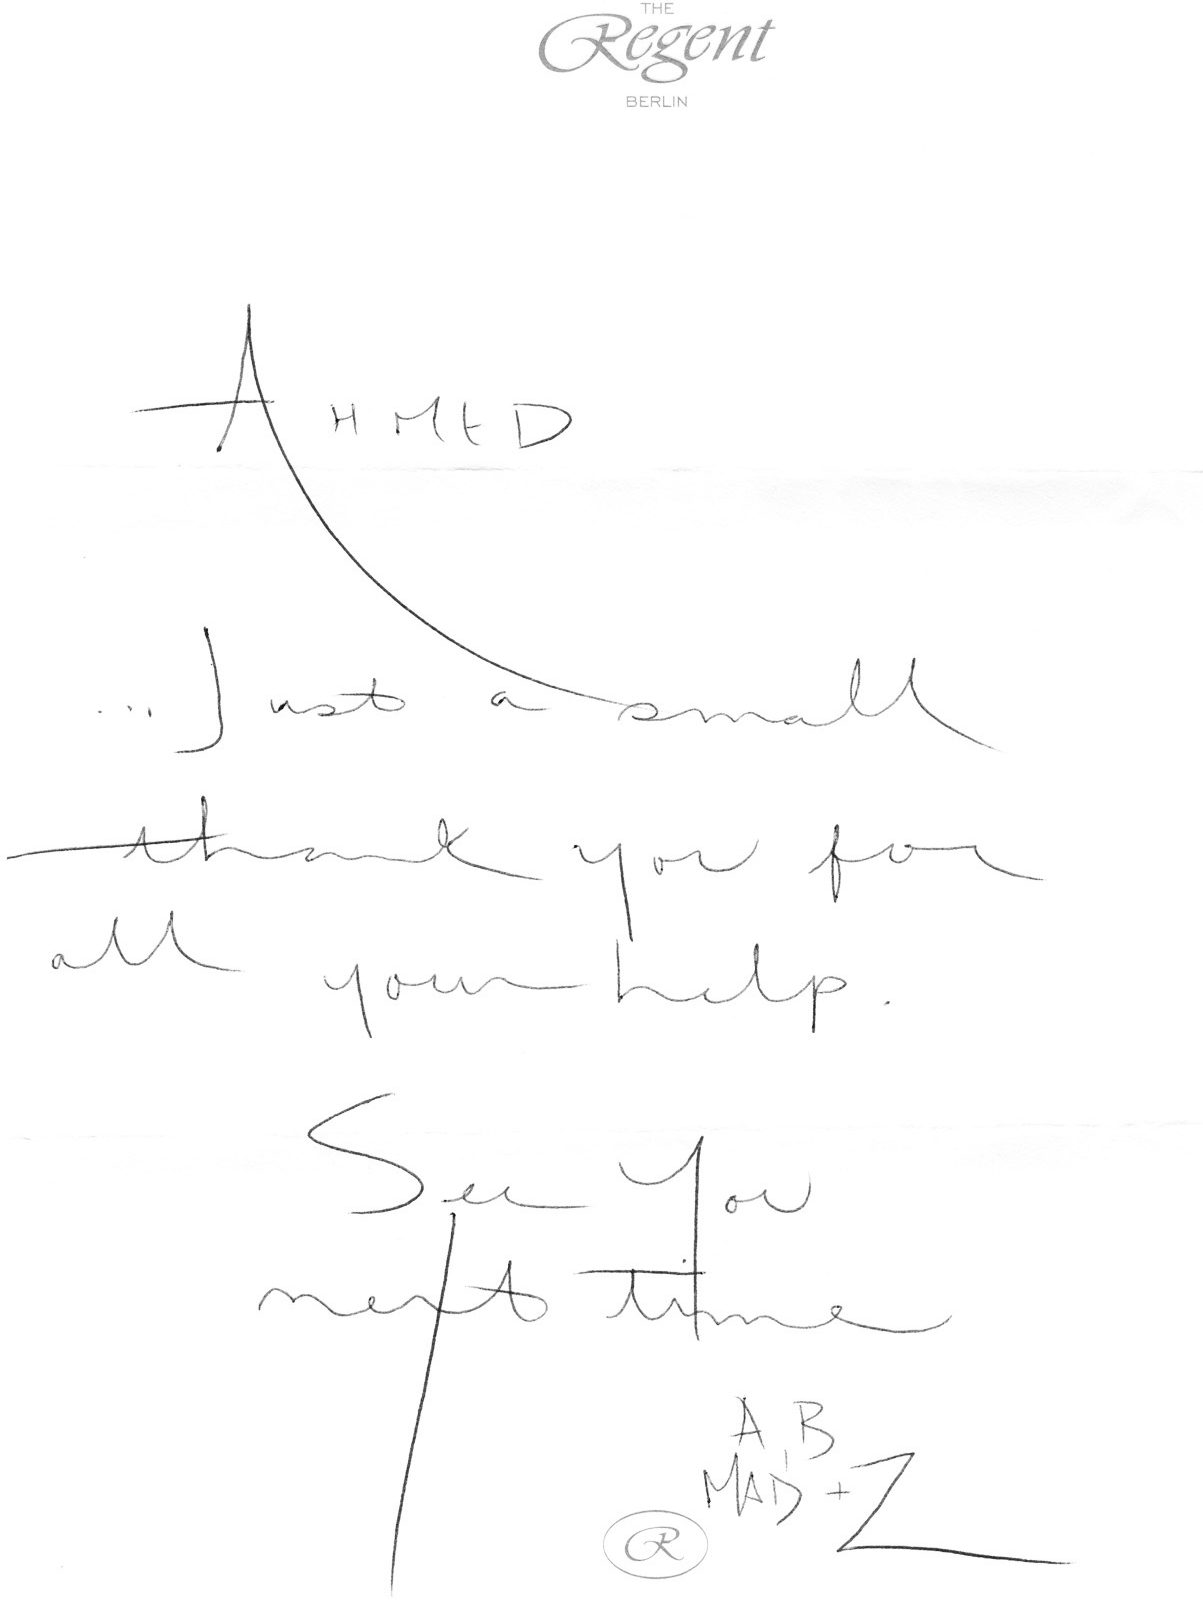 THE
Regent
BERLIN
AHMED
... Just a small
thank you for
all your help.
See You
next time
A, B
MAD + Z
R